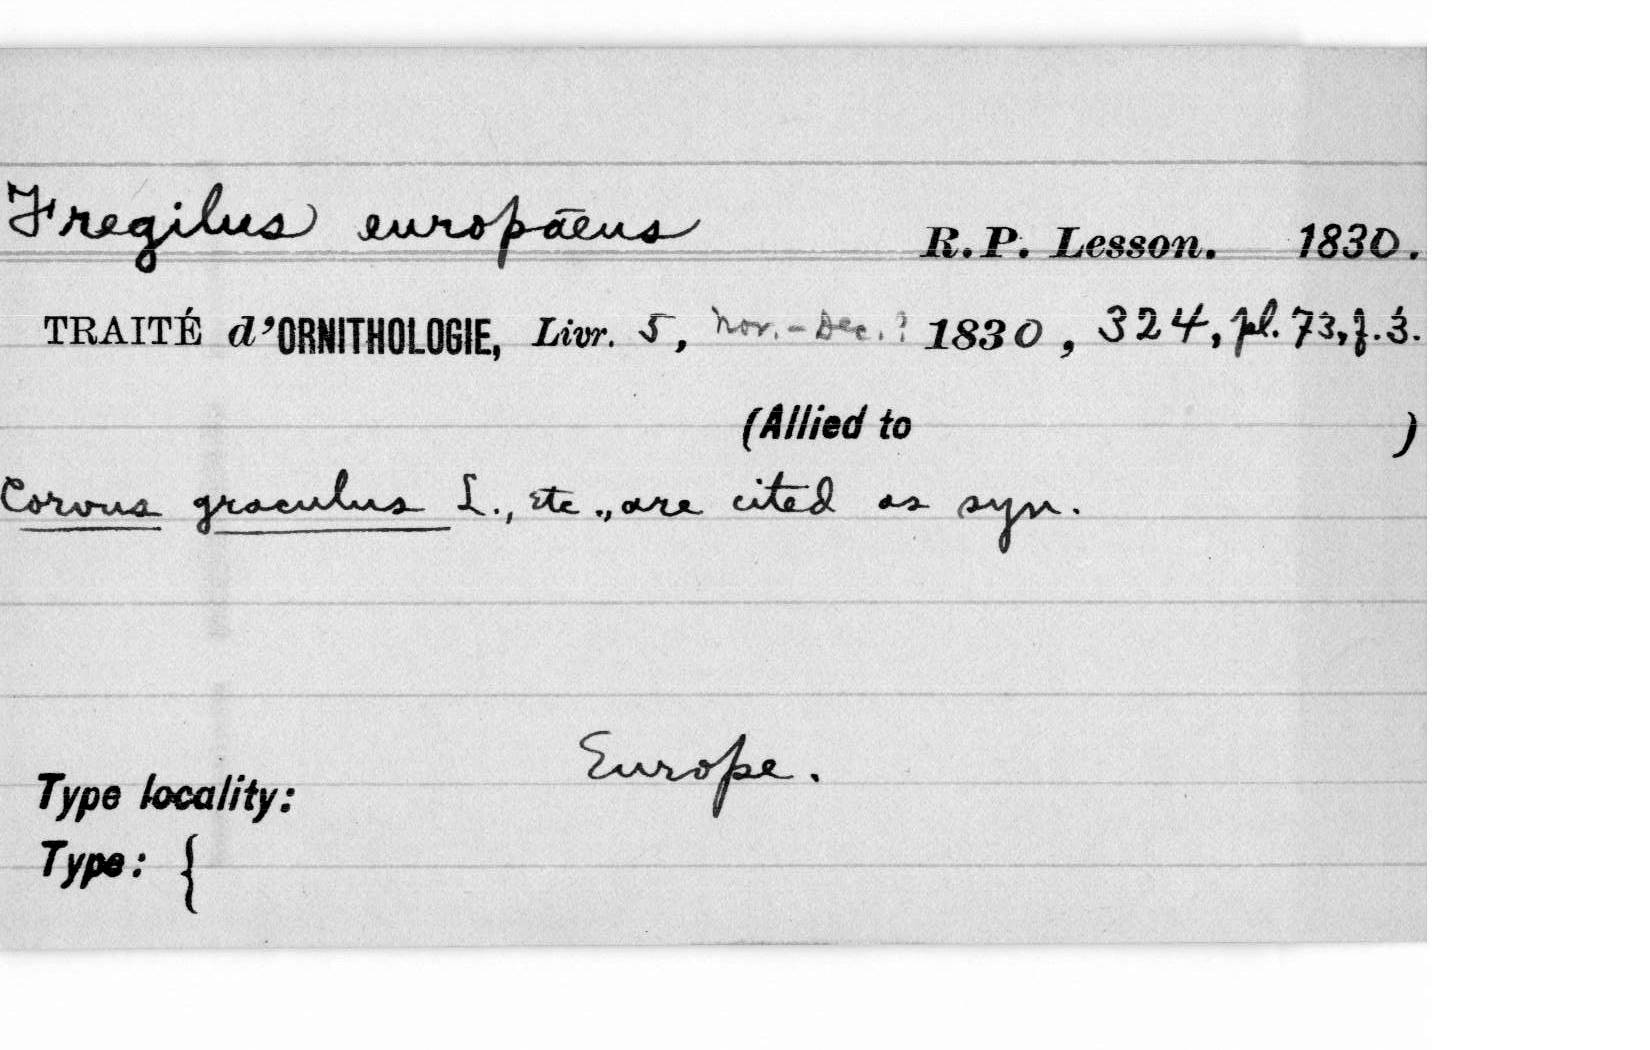 Fregilus europaeus R.P. Lesson. 1830.
TRAITÉ d'ORNITHOLOGIE, Livr. 5, Nov.-Dec.? 1830, 324, pl. 73, f. 3.
(Allied to )
Corvus graculus L., etc., are cited as syn.
Europe.
Type locality:
Type: {